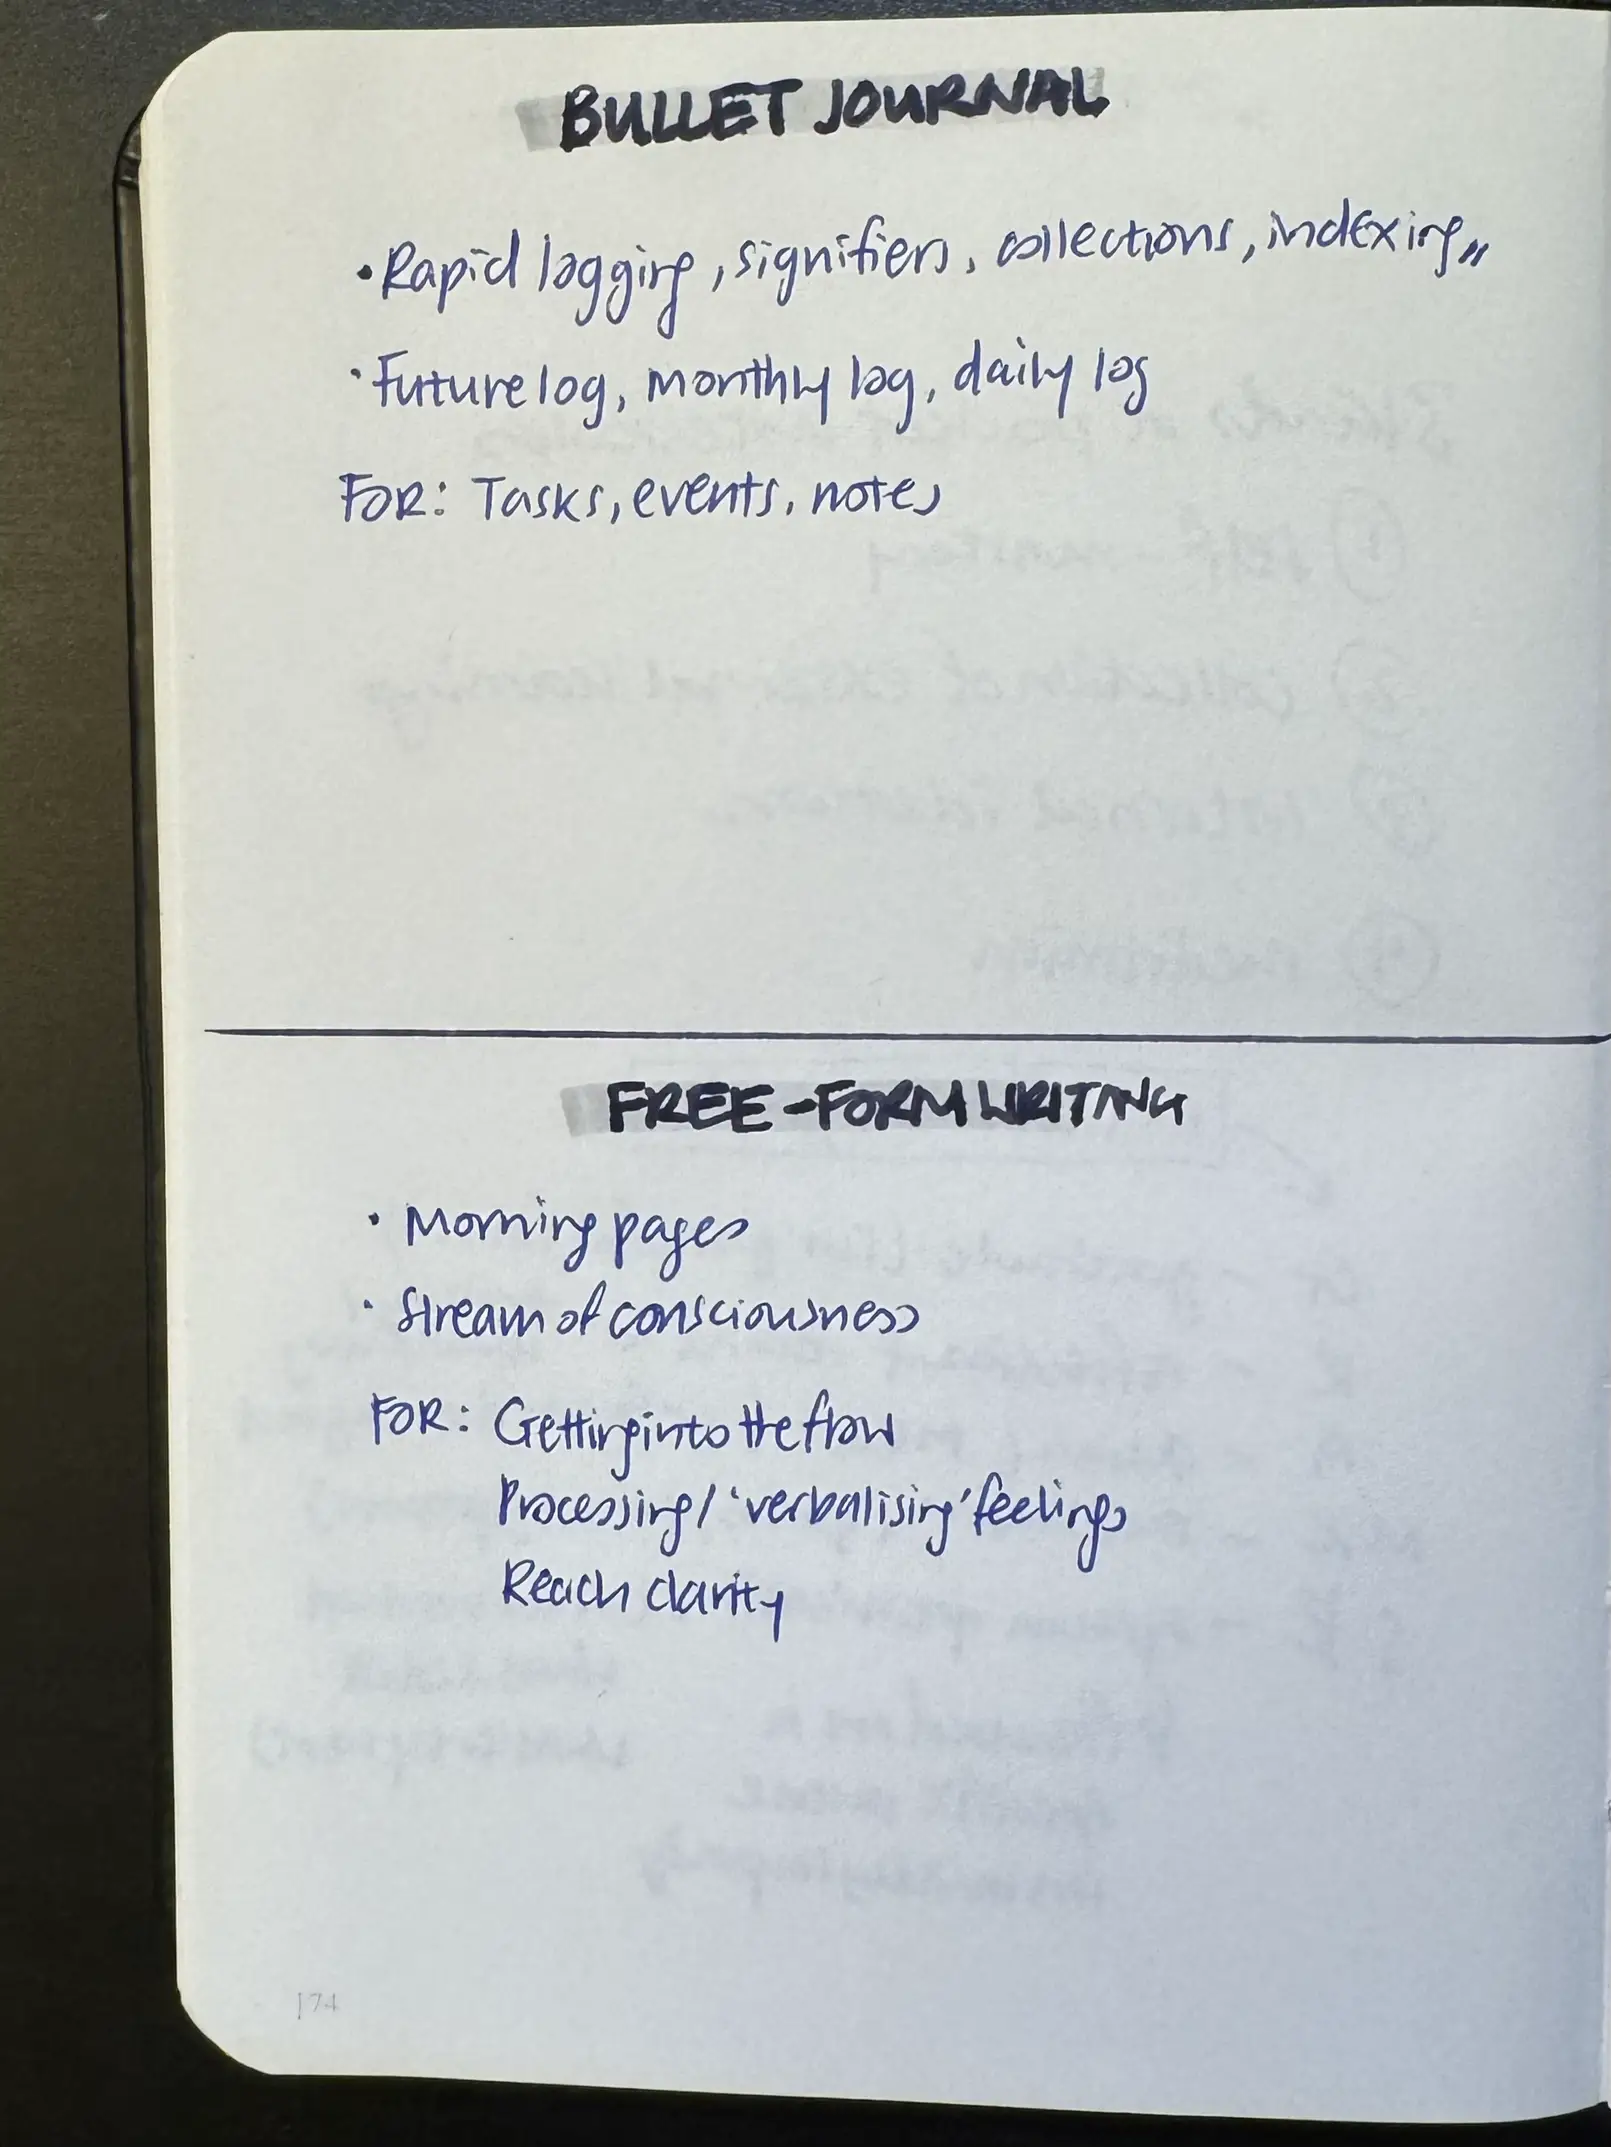 BULLET JOURNAL
• Rapid logging, signifiers, collections, indexing,,
• Future log, monthly log, daily log
FOR: Tasks, events, notes
FREE-FORM WRITING
• Morning pages
• Stream of consciousness
FOR: Getting into the flow
Processing/'verbalising' feelings
Reach clarity
174